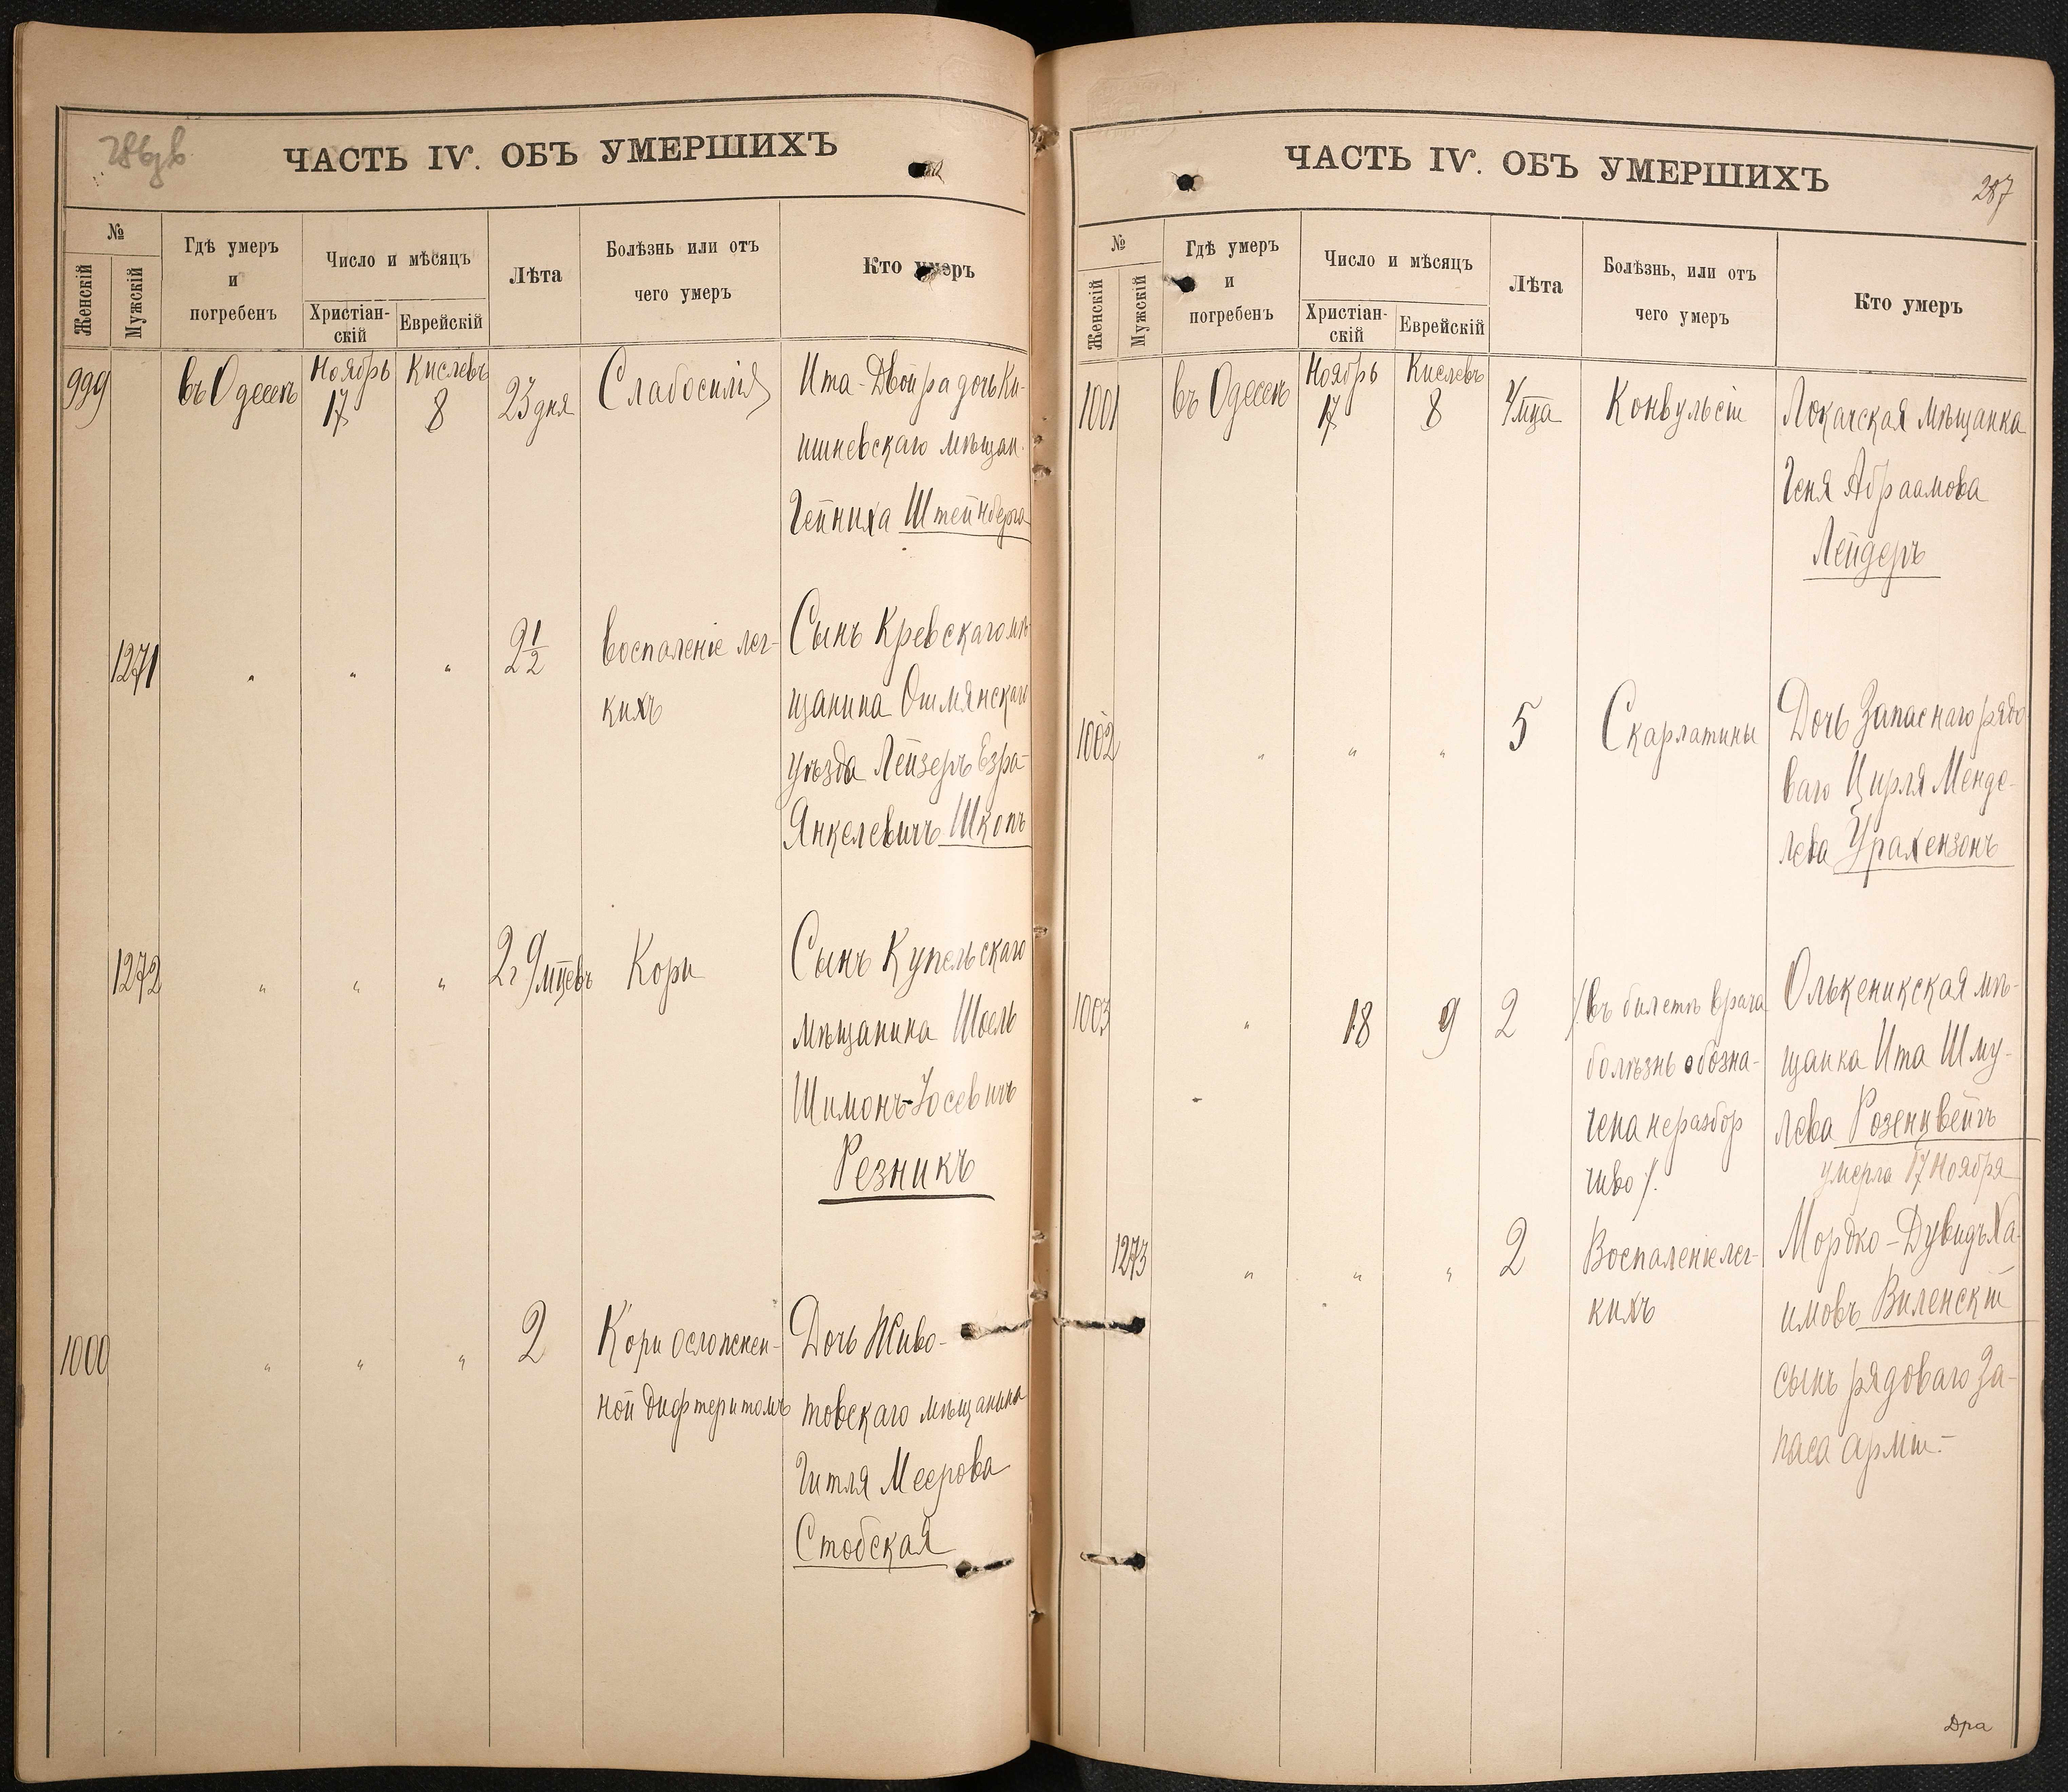 286 об
ЧАСТЬ IV. ОБЪ УМЕРШИХЪ
№
Женскій
Мужскій
Гдѣ умеръ
и
погребенъ
Число и мѣсяцъ
Христіан-
скій
Еврейскій
Лѣта
Болѣзнь или отъ
чего умеръ
Кто умеръ
999
въ Одессѣ
Ноябрь
17
Кислевъ
8
23 дня
Слабосилія
Ита-Двойра дочь Ки-
шиневскаго мѣщан.
Гейниха Штейнберга
1271
"
"
"
2 1/2
воспаленіе лег-
кихъ
Сынъ Кревскаго мѣ
щанина Ошмянскаго
уѣзда Лейзеръ Езра-
Янкелевичъ Шкопъ
1272
"
"
"
2г 9 мцевъ
Кори
Сынъ Купельскаго
мѣщанина Шоель
Шимонъ-Іосевичъ
Резникъ
1000
"
"
"
2
Кори осложнен-
ной дифтеритомъ
Дочь Живо-
товскаго мѣщанина
Гитля Меерова
Стобская
ЧАСТЬ IV. ОБЪ УМЕРШИХЪ
287
№
Женскій
Мужскій
Гдѣ умеръ
и
погребенъ
Число и мѣсяцъ
Христіан-
скій
Еврейскій
Лѣта
Болѣзнь, или отъ
чего умеръ
Кто умеръ
1001
въ Одессѣ
Ноябрь
17
Кислевъ
8
4 мца
Конвульсіи
Локачская мѣщанка
Геня Абраамова
Лейдеръ
1002
"
"
"
5
Скарлатины
Дочь Запаснаго рядо
ваго Цирля Менде-
лева Урахензонъ
1003
"
18
9
2
/въ билетѣ врача
болѣзнь обозна-
чена неразбор
чиво/.
Олькеникская мѣ-
щанка Ита Шму-
лева Розенцвейгъ
умерла 17 Ноября
1273
"
"
"
2
Воспаленіе лег-
кихъ
Мордко-Дувидъ Ха-
имовъ Виленскій
сынъ рядоваго За-
паса арміи.-
Дра